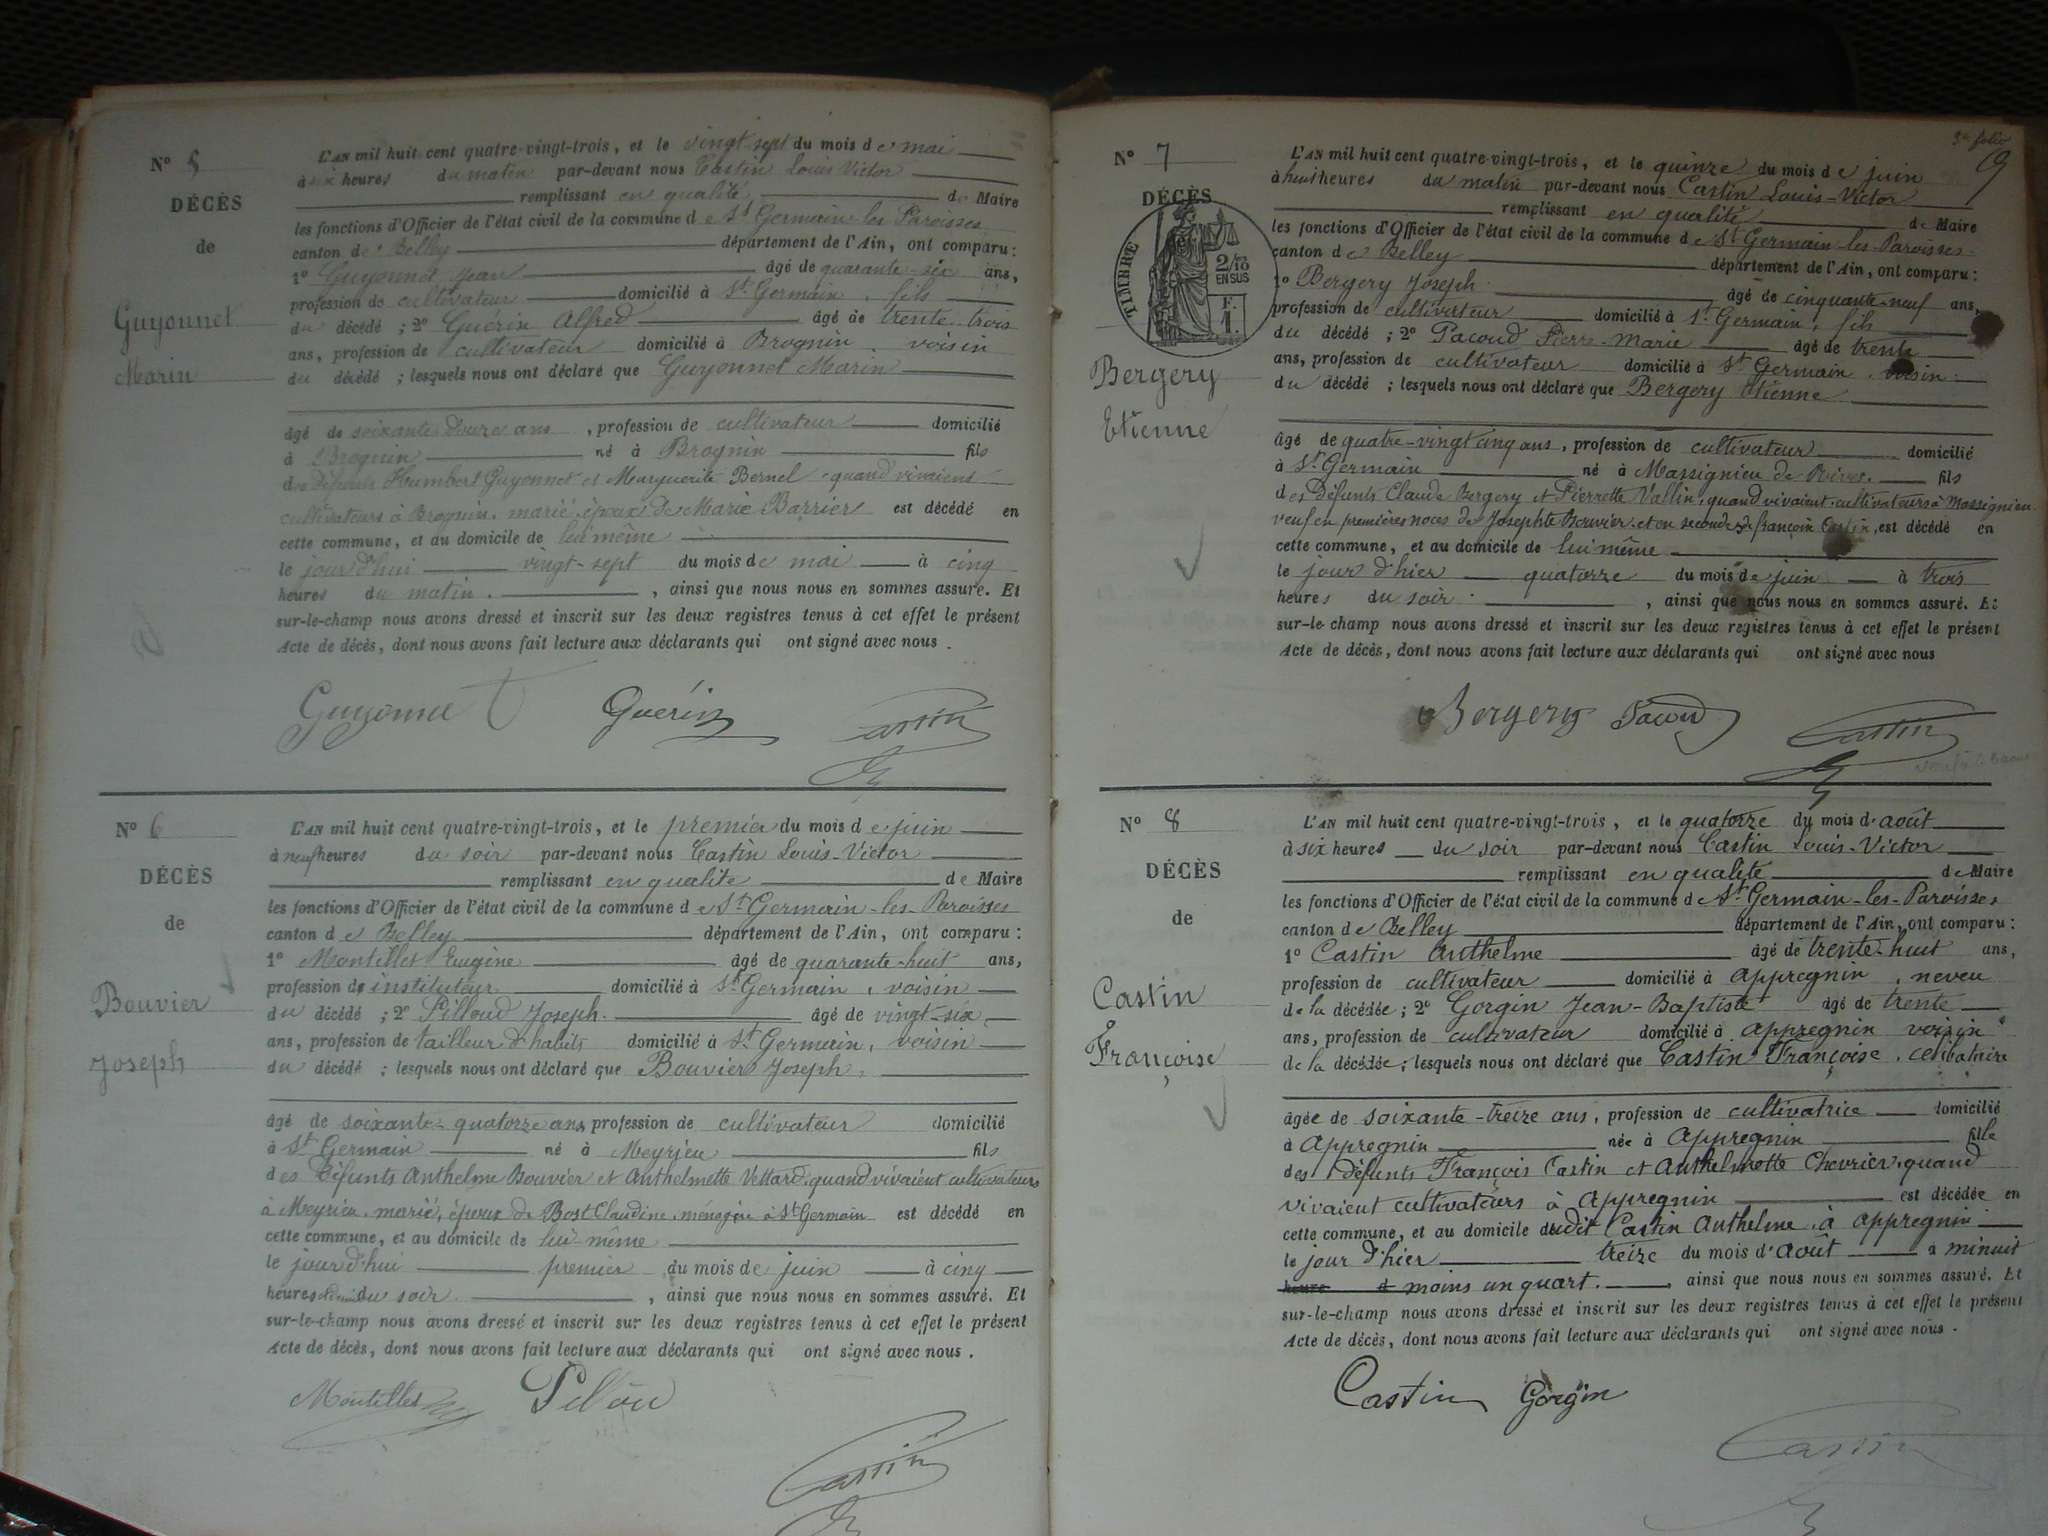 N° 5
DÉCÈS
de
Guyonnet
Marin
L'AN mil huit cent quatre-vingt-trois, et le vingt-sept du mois de mai
à six heures du matin par-devant nous Castin Louis Victor
remplissant en qualité de Maire
les fonctions d'Officier de l'état civil de la commune de St Germain-les-Paroisses
canton de Belley département de l'Ain, ont comparu :
1° Guyonnet Jean âgé de quarante-six ans,
profession de cultivateur domicilié à St Germain, fils
du décédé ; 2° Guérin Alfred âgé de trente-trois
ans, profession de cultivateur domicilié à Brognin, voisin
du décédé ; lesquels nous ont déclaré que Guyonnet Marin
âgé de soixante-douze ans, profession de cultivateur domicilié
à Brognin né à Brognin fils
des défunts Humbert Guyonnet et Marguerite Bernel quand vivaient
cultivateurs à Brognin, marié, époux de Marie Barrier est décédé en
cette commune, et au domicile de lui même
le jour d'hui vingt-sept du mois de mai à cinq
heures du matin, ainsi que nous nous en sommes assuré. Et
sur-le-champ nous avons dressé et inscrit sur les deux registres tenus à cet effet le présent
Acte de décès, dont nous avons fait lecture aux déclarants qui ont signé avec nous.
Guyonnet Guérin Castin
N° 6
DÉCÈS
de
Bouvier
Joseph
L'AN mil huit cent quatre-vingt-trois, et le premier du mois de juin
à neuf heures du soir par-devant nous Castin Louis-Victor
remplissant en qualité de Maire
les fonctions d'Officier de l'état civil de la commune de St Germain-les-Paroisses
canton de Belley département de l'Ain, ont comparu :
1° Montillet Eugène âgé de quarante-huit ans,
profession de instituteur domicilié à St Germain, voisin
du décédé ; 2° Pilloud Joseph. âgé de vingt-six
ans, profession de tailleur d'habits domicilié à St Germain, voisin
du décédé ; lesquels nous ont déclaré que Bouvier Joseph,
âgé de soixante-quatorze ans, profession de cultivateur domicilié
à St Germain né à Meyrieu fils
des défunts Anthelme Bouvier et Anthelmette Vettard, quand vivaient cultivateurs
à Meyrieu, marié, époux de Bost Claudine, ménagère à St Germain est décédé en
cette commune, et au domicile de lui-même
le jour d'hui premier du mois de juin à cinq
heures et demi du soir, ainsi que nous nous en sommes assuré. Et
sur-le-champ nous avons dressé et inscrit sur les deux registres tenus à cet effet le présent
Acte de décès, dont nous avons fait lecture aux déclarants qui ont signé avec nous.
Montillet Pillou
Castin
3e folio
9
N° 7
DÉCÈS
TIMBRE
2/10
EN SUS
F.
1.
Bergery
Etienne
L'AN mil huit cent quatre-vingt-trois, et le quinze du mois de juin
à huit heures du matin par-devant nous Castin Louis-Victor
remplissant en qualité de Maire
les fonctions d'Officier de l'état civil de la commune de St Germain-les-Paroisses
canton de Belley département de l'Ain, ont comparu :
1° Bergery Joseph. âgé de cinquante-neuf ans,
profession de cultivateur domicilié à St Germain, fils
du décédé ; 2° Pacoud Pierre-Marie âgé de trente
ans, profession de cultivateur domicilié à St Germain, voisin
du décédé ; lesquels nous ont déclaré que Bergery Etienne
âgé de quatre-vingt cinq ans, profession de cultivateur domicilié
à St Germain né à Massignieu de Rives. fils
des défunts Claude Bergery et Pierrette Vallin, quand vivaient cultivateurs à Massignieu
veuf en premières noces de Josephte Bouvier et en secondes de françoise Castin, est décédé en
cette commune, et au domicile de lui même
le jour d'hier quatorze du mois de juin à trois
heures du soir, ainsi que nous nous en sommes assuré. Et
sur-le-champ nous avons dressé et inscrit sur les deux registres tenus à cet effet le présent
Acte de décès, dont nous avons fait lecture aux déclarants qui ont signé avec nous
Bergery Pacoud
Castin
N° 8
DÉCÈS
de
Castin
Françoise
L'AN mil huit cent quatre-vingt-trois, et le quatorze du mois d'août
à six heures du soir par-devant nous Castin Louis-Victor
remplissant en qualité de Maire
les fonctions d'Officier de l'état civil de la commune de St Germain-les-Paroisses
canton de Belley département de l'Ain, ont comparu :
1° Castin Anthelme âgé de trente-huit ans,
profession de cultivateur domicilié à Appregnin, neveu
de la décédée ; 2° Gorgin Jean-Baptiste âgé de trente
ans, profession de cultivateur domicilié à Appregnin voisin
de la décédée ; lesquels nous ont déclaré que Castin Françoise, célibataire
âgée de soixante-treize ans, profession de cultivatrice domicilié
à Appregnin née à Appregnin fille
des défunts François Castin et Anthelmette Chevrier, quand
vivaient cultivateurs à Appregnin est décédée en
cette commune, et au domicile dudit Castin Anthelme, à Appregnin
le jour d'hier treize du mois d'août à minuit
heure moins un quart, ainsi que nous nous en sommes assuré. Et
sur-le-champ nous avons dressé et inscrit sur les deux registres tenus à cet effet le présent
Acte de décès, dont nous avons fait lecture aux déclarants qui ont signé avec nous.
Castin Gorgin
Castin